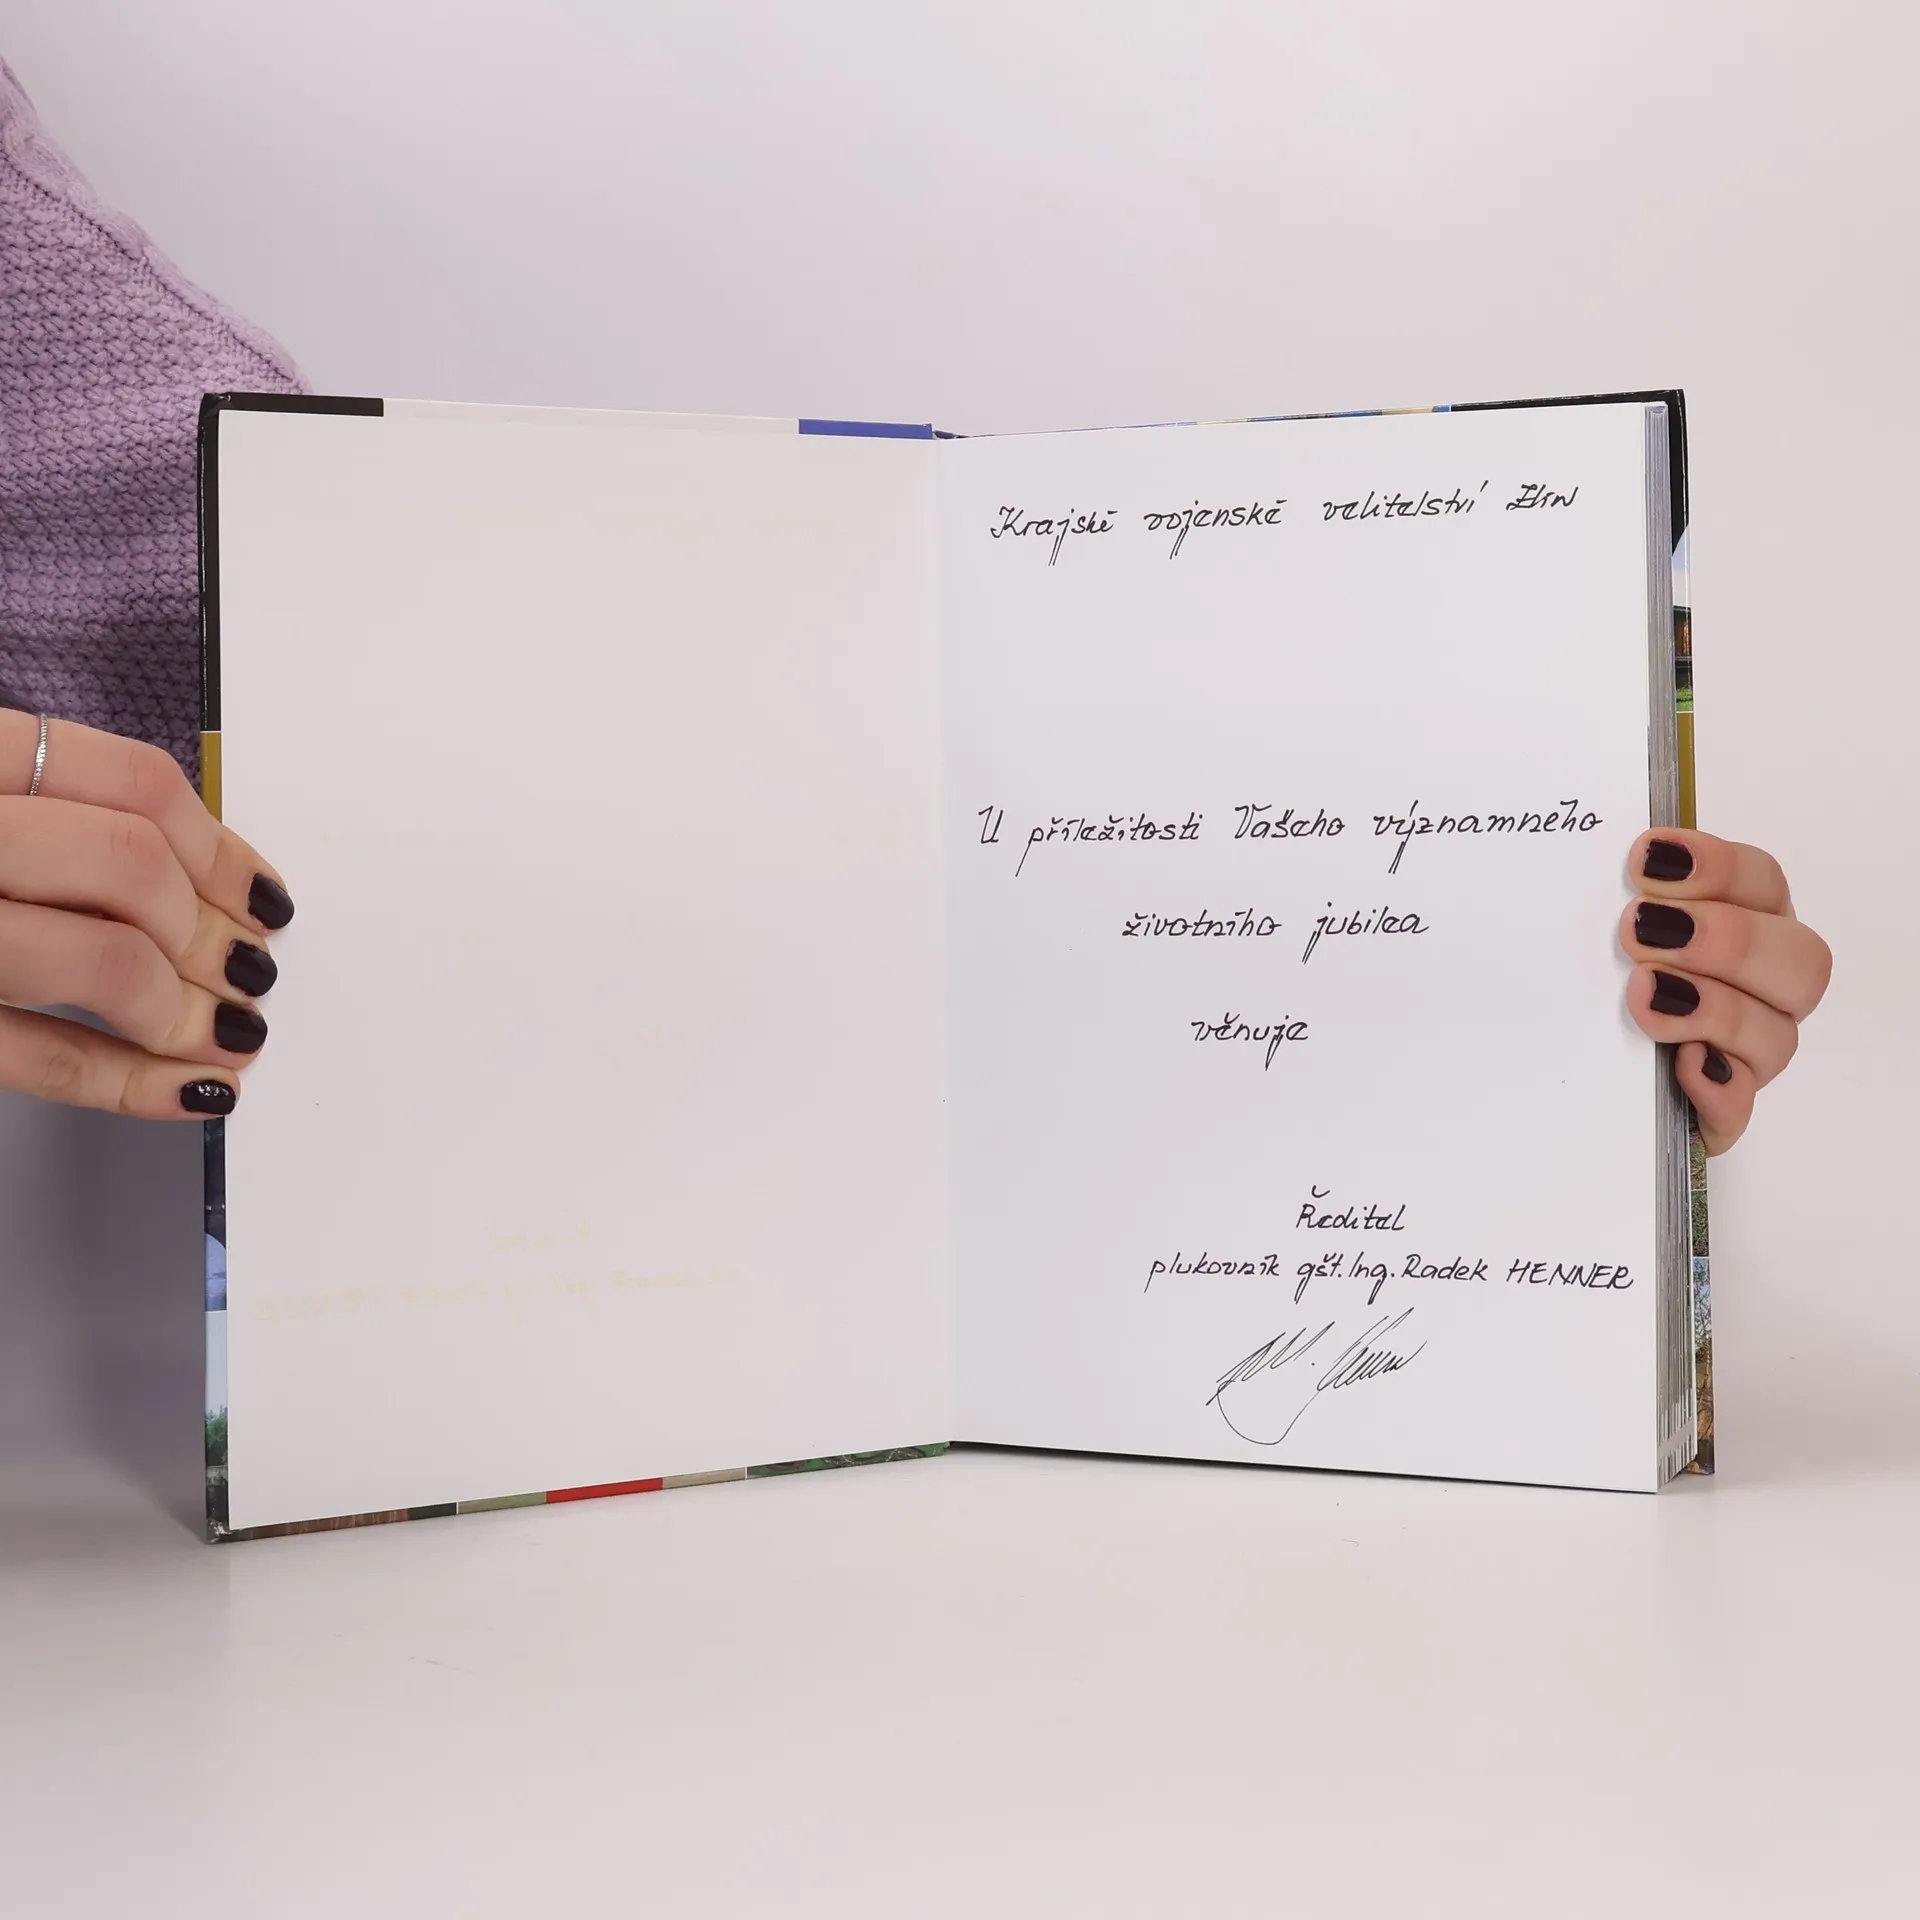 Krajské vojenské velitelství Zlín
U příležitosti Vašeho významného
životního jubilea
věnuje
Ředitel
plukovník gšt. Ing. Radek HENNER